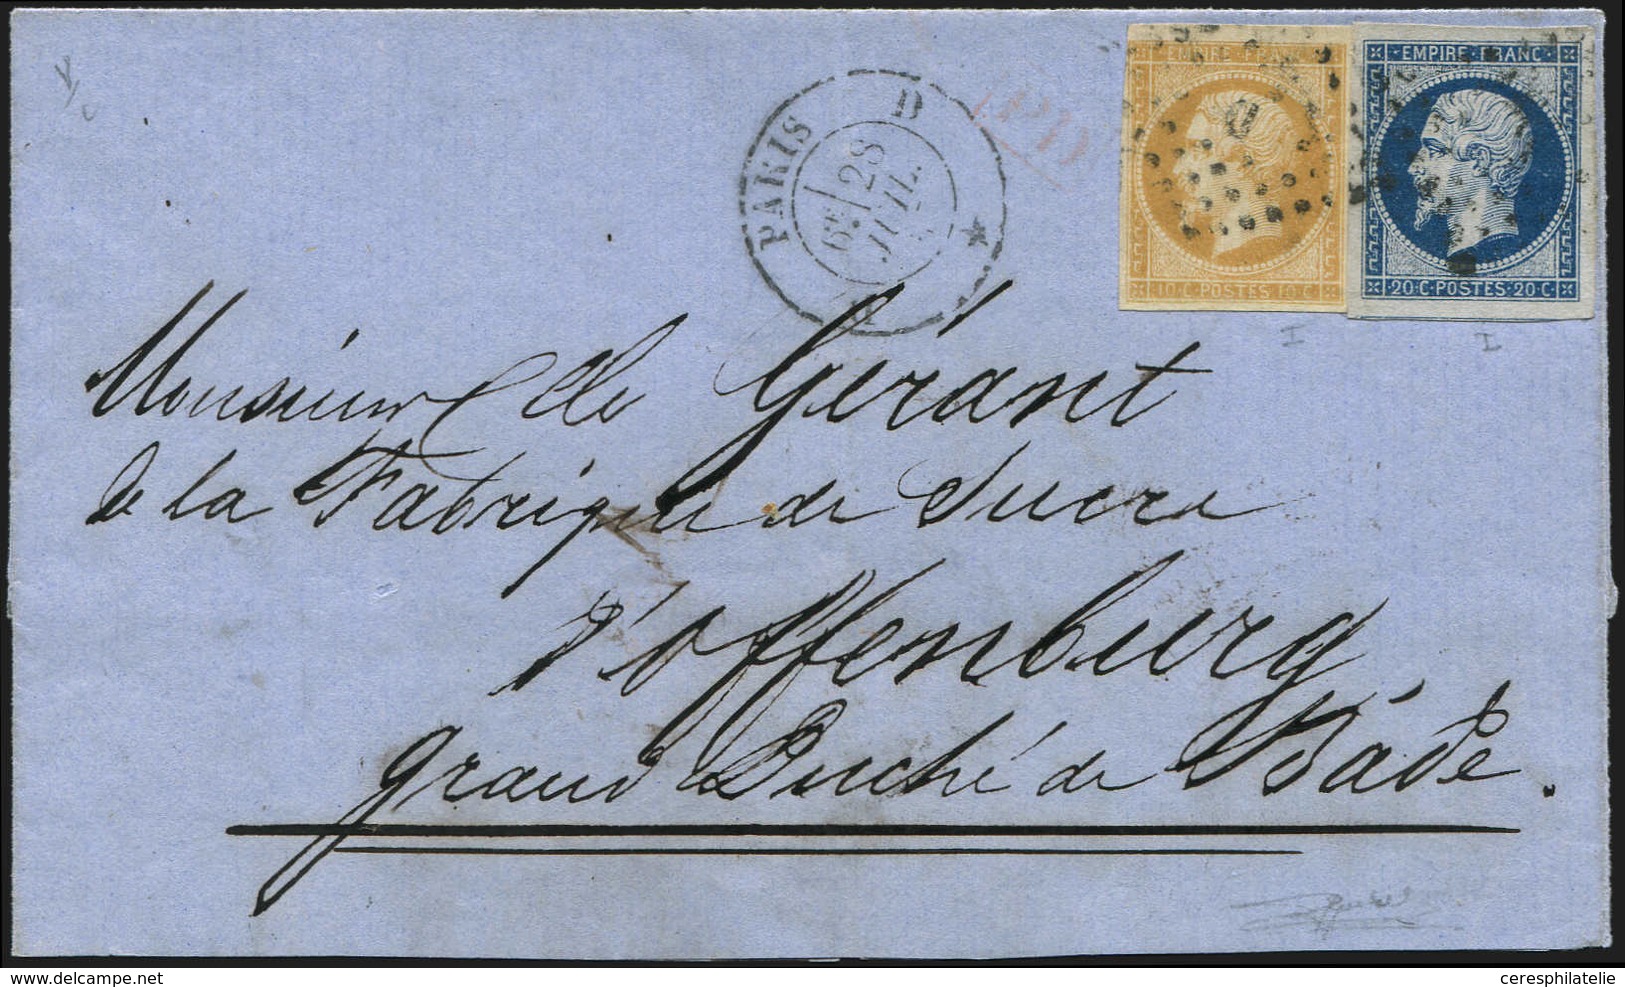 PARIS D
6E 28
JUIL.
PD
EMPIRE FRANC
10 C. POSTES 10 C.
EMPIRE FRANC
20 C. POSTES 20 C.
D
I I
Monsieur le Gérant
de la Fabrique de Sucre
d'Offenburg
grand Duché de Bade.
delcampe.net
ceresphilatelie